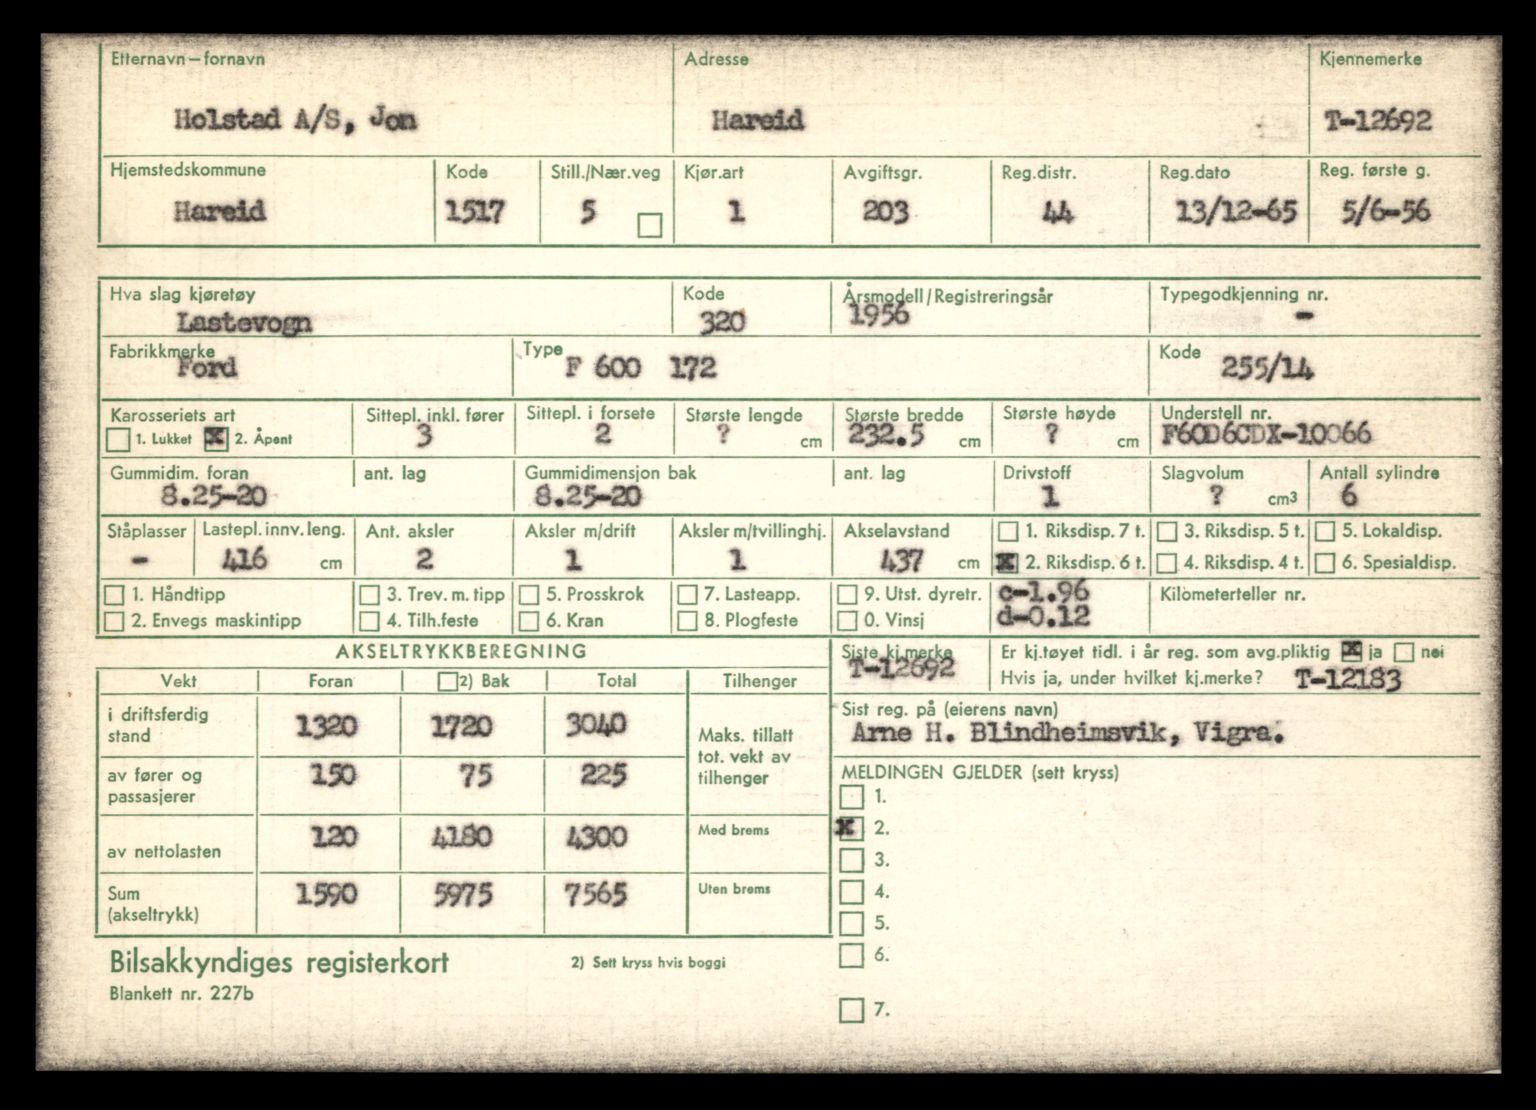 Etternavn – fornavn Adresse Kjennemerke
Holstad A/S, Jon Hareid T-12692
Hjemstedskommune Kode Still./Nær.veg Kjør.art Avgiftsgr. Reg.distr. Reg.dato Reg. første g.
Hareid 1517 5 1 203 44 13/12-65 5/6-56
Hva slag kjøretøy Kode Årsmodell/Registreringsår Typegodkjenning nr.
Lastevogn 320 1956 -
Fabrikkmerke Type Kode
Ford F 600 172 255/14
Karosseriets art Sittepl. inkl. fører Sittepl. i forsete Største lengde Største bredde Største høyde Understell nr.
1. Lukket X 2. Åpent 3 2 ? cm 232.5 cm ? cm F60D6CDX-10066
Gummidim. foran ant. lag Gummidimensjon bak ant. lag Drivstoff Slagvolum Antall sylindre
8.25-20 8.25-20 1 ? cm3 6
Ståplasser Lastepl. innv. leng. Ant. aksler Aksler m/drift Aksler m/tvillinghj. Akselavstand 1. Riksdisp. 7 t. 3. Riksdisp. 5 t. 5. Lokaldisp.
- 416 cm 2 1 1 437 cm X 2. Riksdisp. 6 t. 4. Riksdisp. 4 t. 6. Spesialdisp.
1. Håndtipp 3. Trev. m. tipp 5. Prosskrok 7. Lasteapp. 9. Utst. dyretr. c-1.96 Kilometerteller nr.
2. Envegs maskintipp 4. Tilh.feste 6. Kran 8. Plogfeste 0. Vinsj d-0.12
AKSELTRYKKBEREGNING
Vekt Foran 2) Bak Total Tilhenger
i driftsferdig stand 1320 1720 3040
av fører og passasjerer 150 75 225
av nettolasten 120 4180 4300
Sum (akseltrykk) 1590 5975 7565
Maks. tillatt
tot. vekt av
tilhenger
Med brems
Uten brems
Siste kj.merke Er kj.tøyet tidl. i år reg. som avg.pliktig X ja nei
T-12692 Hvis ja, under hvilket kj.merke? T-12183
Sist reg. på (eierens navn)
Arne H. Blindheimsvik, Vigra.
MELDINGEN GJELDER (sett kryss)
1.
X 2.
3.
4.
5.
6.
7.
Bilsakkyndiges registerkort 2) Sett kryss hvis boggi
Blankett nr. 227b